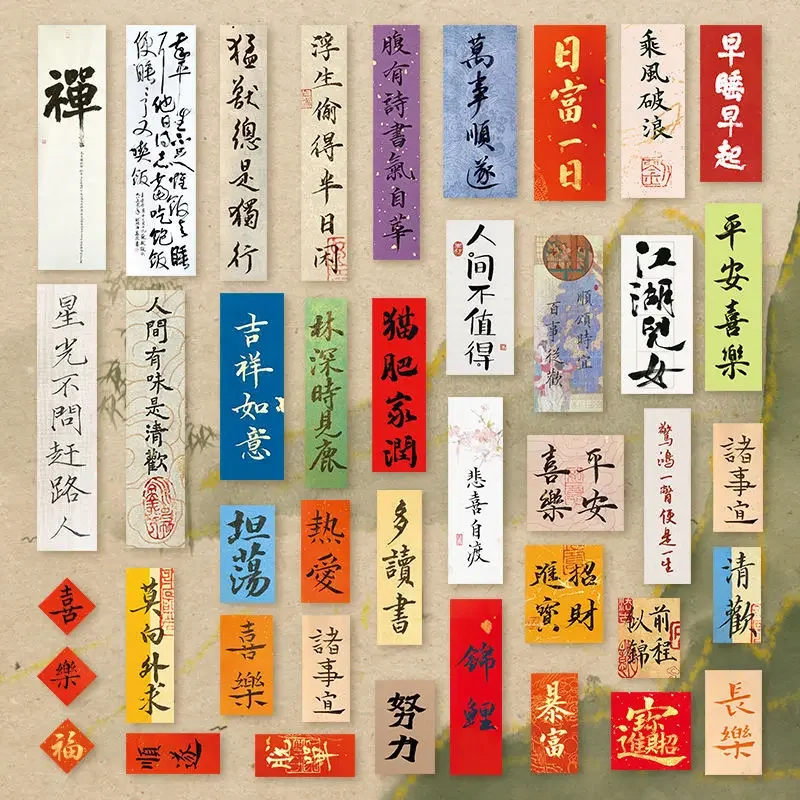 禪
猛獸總是獨行
浮生偷得半日闲
腹有詩書氣自華
萬事順遂
日富一日
乘風破浪
早睡早起
人间不值得
順頌時宜
百事從歡
江湖兒女
平安喜樂
星光不問赶路人
人間有味是清歡
吉祥如意
林深時見鹿
猫肥家潤
悲喜自渡
平安
喜樂
驚鴻一瞥便是一生
諸事宜
坦荡
熱愛
多讀書
招財
進寶
清歡
喜
樂
福
莫向外求
喜樂
諸事宜
努力
錦鯉
前程
以錦
暴富
招財進寶
長樂
順遂